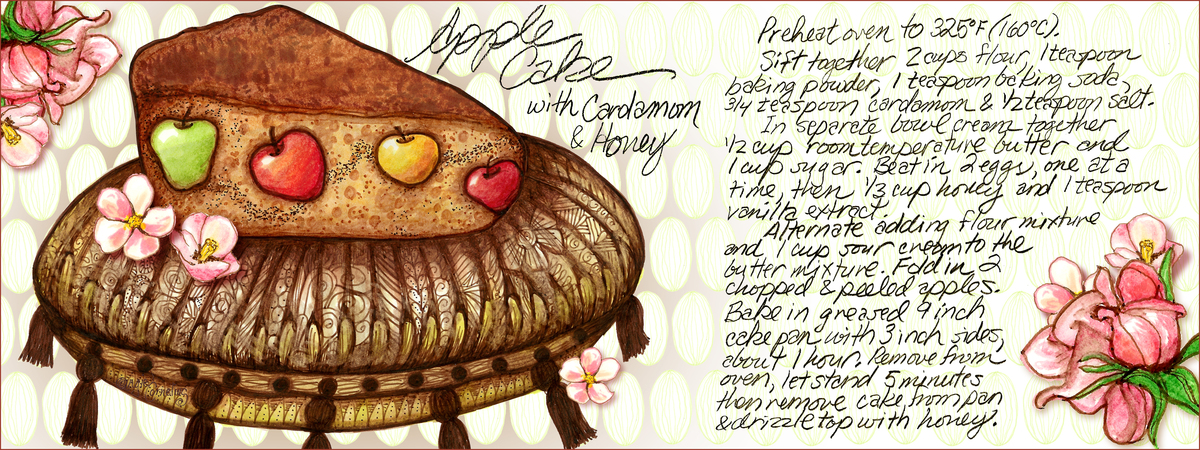 Apple
Cake
with Cardamom
& Honey
Preheat oven to 325°F (160°C).
Sift together 2 cups flour, 1 teaspoon
baking powder, 1 teaspoon baking soda,
3/4 teaspoon cardamom & 1/2 teaspoon salt.
In separate bowl cream together
1/2 cup room temperature butter and
1 cup sugar. Beat in 2 eggs, one at a
time, then 1/3 cup honey and 1 teaspoon
vanilla extract.
Alternate adding flour mixture
and 1 cup sour cream to the
butter mixture. Fold in 2
chopped & peeled apples.
Bake in greased 9 inch
cake pan with 3 inch sides,
about 1 hour. Remove from
oven, let stand 5 minutes
then remove cake from pan
& drizzle top with honey.